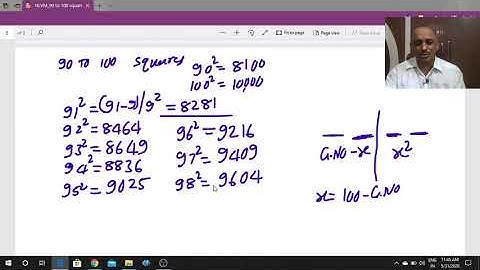 16.VM_90 to 100 squar
90 TO 100 squares
90² = 8100
100² = 10,000
91² = (91-9)/9² = 8281
92² = 8464
93² = 8649
94² = 8836
95² = 9025
96² = 9216
97² = 9409
98² = 9604
G.NO - x
x²
x = 100 - G.NO
11:45 AM
5/31/2020
ENG
IN